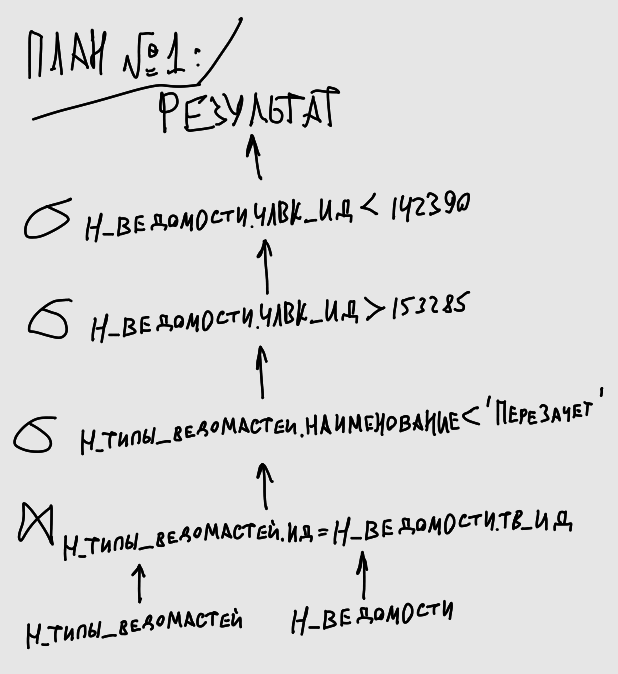 ПЛАН №1:
РЕЗУЛЬТАТ
σ Н_ВЕДОМОСТИ.ЧЛВК_ИД < 142390
σ Н_ВЕДОМОСТИ.ЧЛВК_ИД > 153285
σ Н_ТИПЫ_ВЕДОМАСТЕЙ.НАИМЕНОВАНИЕ < 'ПЕРЕЗАЧЕТ'
⋈ Н_ТИПЫ_ВЕДОМАСТЕЙ.ИД = Н_ВЕДОМОСТИ.ТВ_ИД
Н_ТИПЫ_ВЕДОМАСТЕЙ Н_ВЕДОМОСТИ